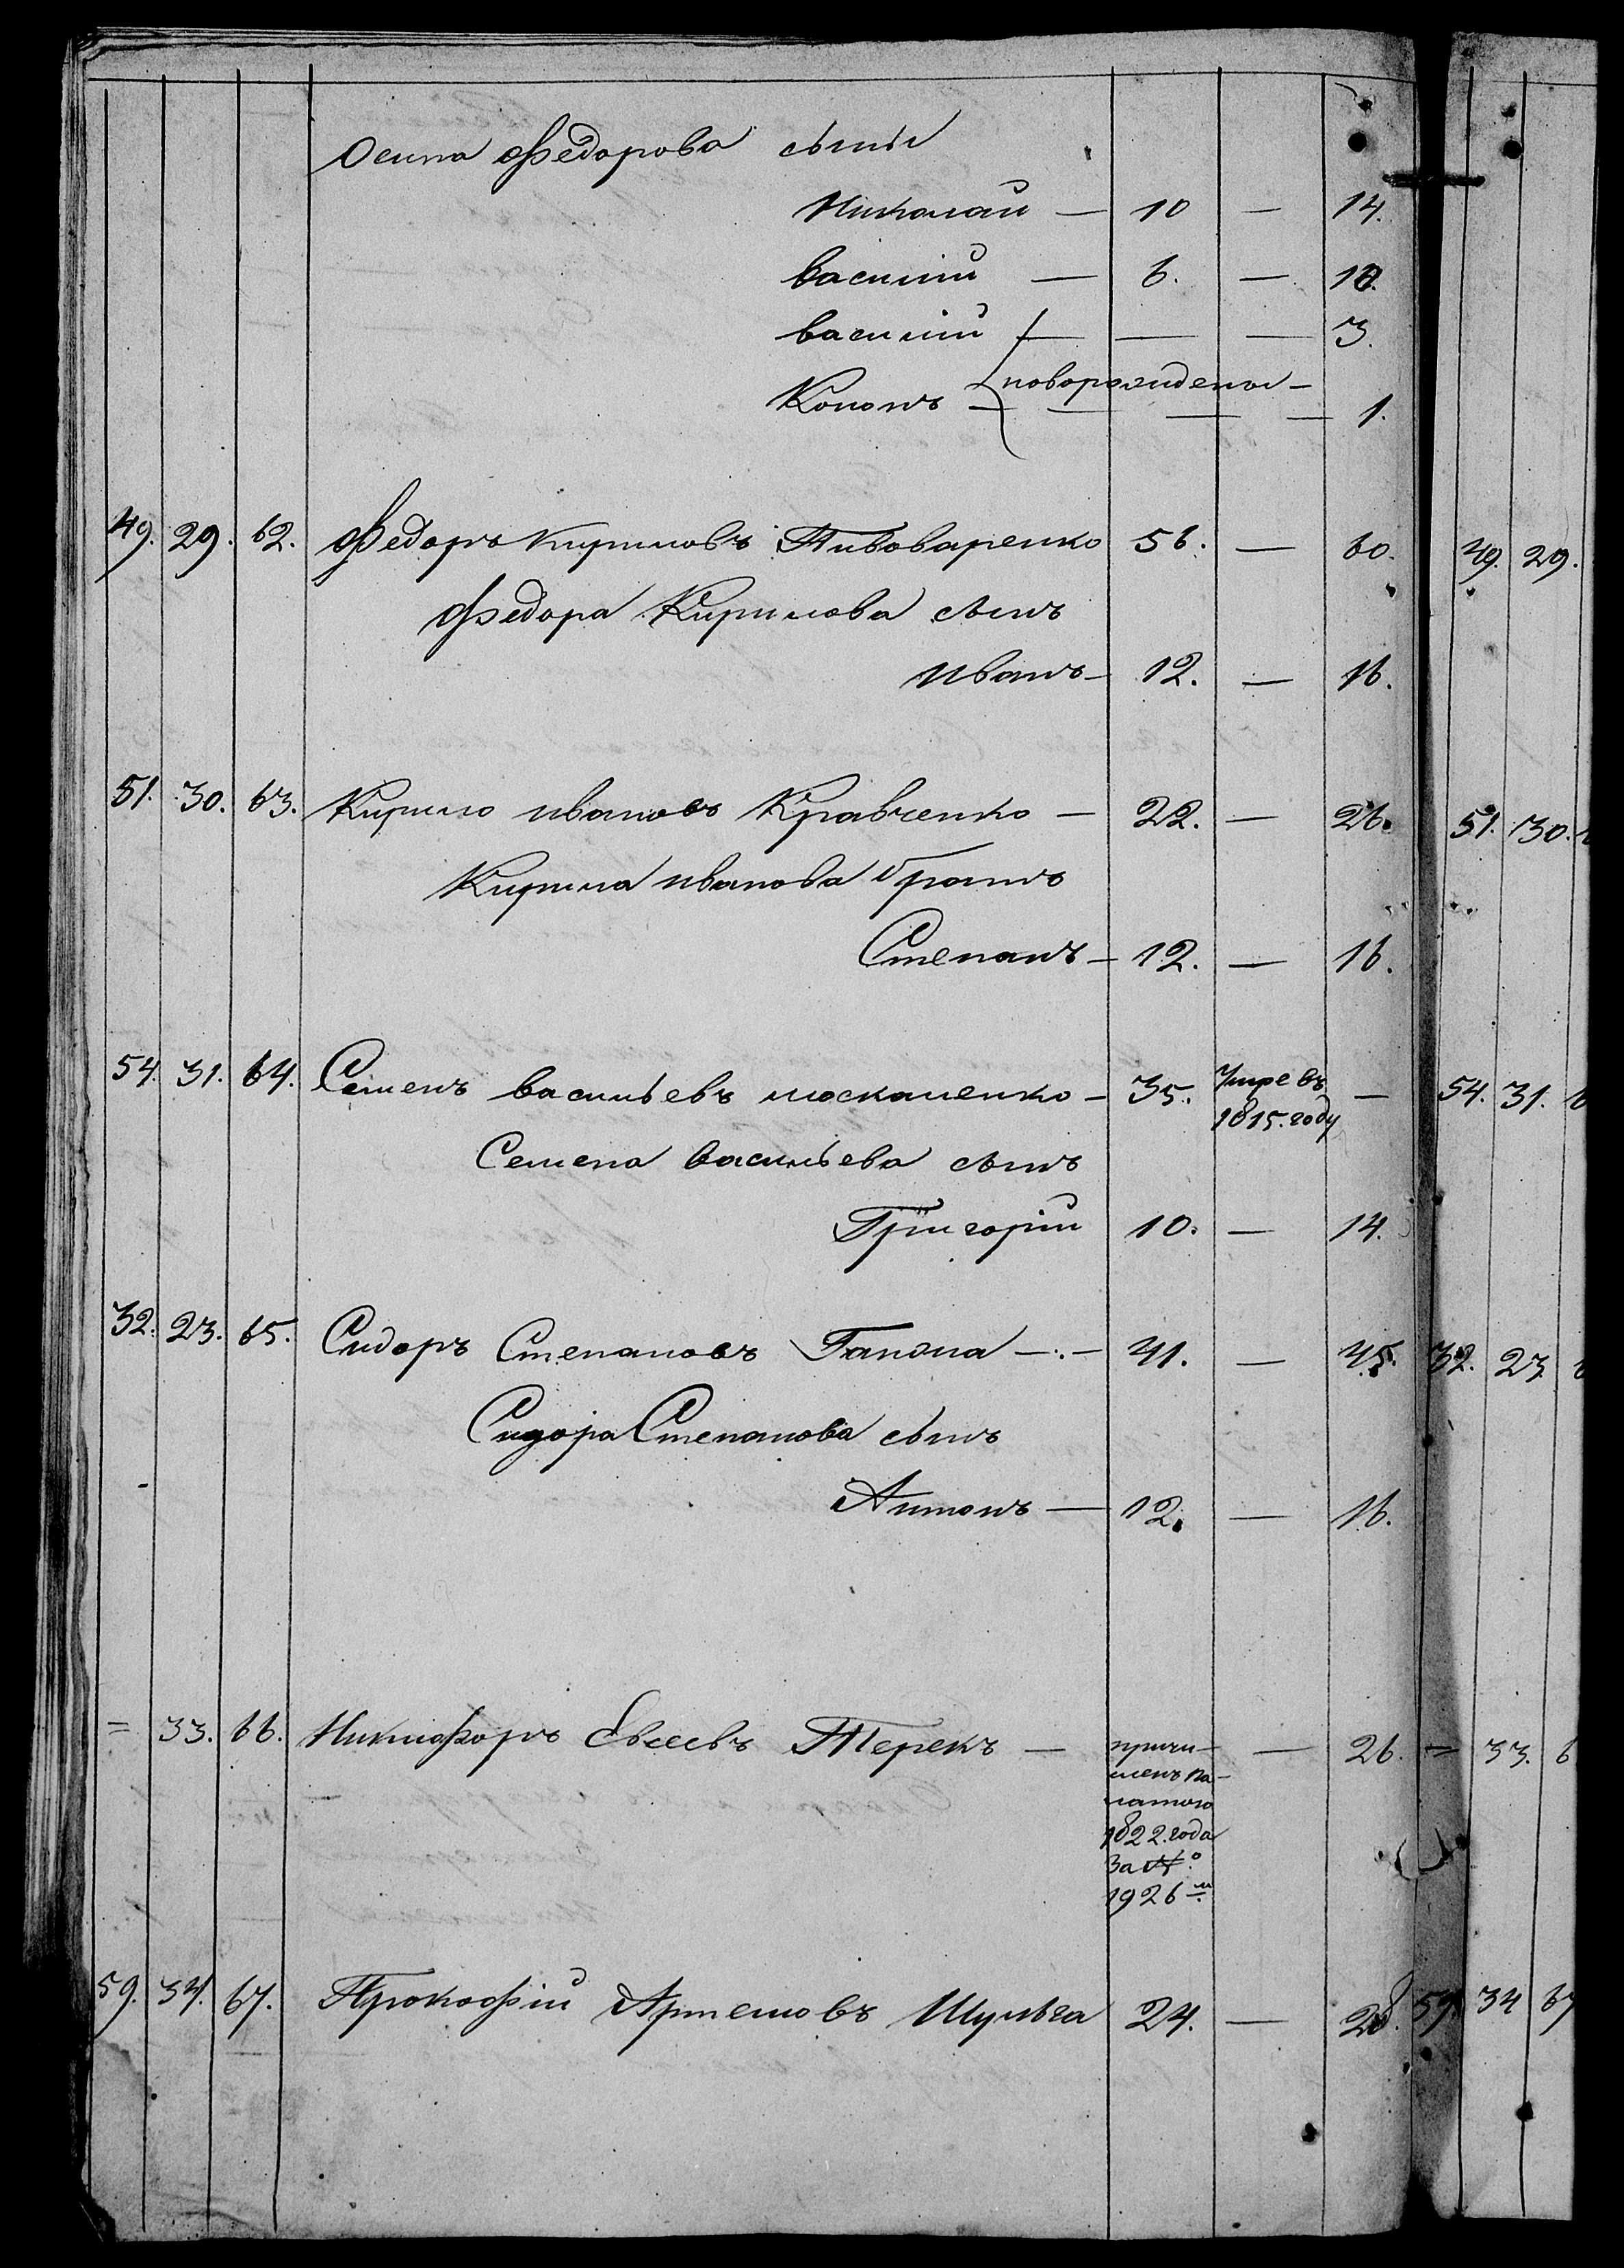 Осипа Федорова сыны
Николай — 10 — 14.
василий — 6. — 10.
василий — — — 3.
новорождены —
Кононъ — — — — 1.
49. 29. 62. Федоръ Кириловъ Пивоваренко 56. — 60.
Федора Кирилова сынъ
Иванъ — 12. — 16.
51. 30. 63. Кирило ивановъ Кравченко — 22. — 26.
Кирила иванова братъ
Степанъ — 12. — 16.
54. 31. 64. Семенъ васильевъ москаленко — 35. Умре въ —
1815. году
Семена васильева сынъ
Григорій 10. — 14.
32. 23. 65. Сидоръ Степановъ — 41. — 45.
Сидора Степанова сынъ
Антонъ — 12. — 16.
= 33. 66. Никифоръ Евсеевъ Терекъ — причи- — 26.
сленъ па-
латою
1822. года
за №
1926 м
59. 34. 67. Прокофій Артемовъ Шульга 24. — 28.
49. 29.
51. 30.
54. 31.
32. 23.
= 33. 6
59. 34 67